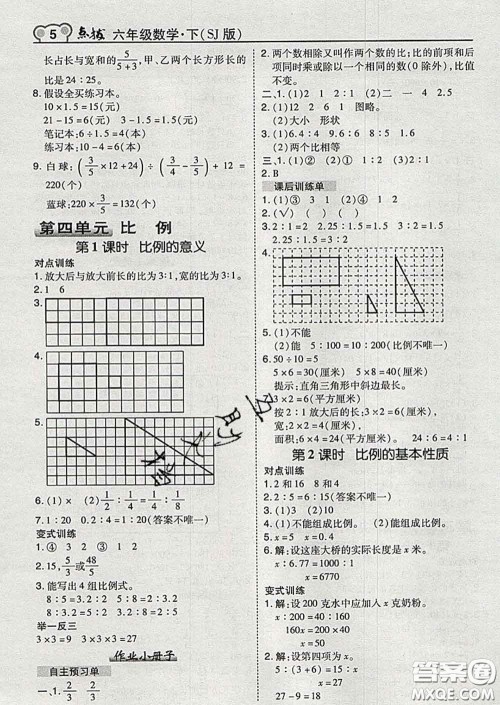 5 点拨 六年级数学·下(SJ版)
长占长与宽和的5/(5+3),甲、乙两个长方形长的
比是24:25。
8. 假设全买练习本。
10×1.5=15(元)
21-15=6(元) 3-1.5=1.5(元)
笔记本:6÷1.5=4(本)
练习本:10-4=6(本)
9. 白球:(3/5×12+24)÷(3/4-3/5)+12=
220(个)
蓝球:220×3/5=132(个)
第四单元 比 例
第1课时 比例的意义
对点训练
1. 放大后与放大前长的比为3:1,宽的比为3:1。
2. 1 6
3.
4.
5.
6. (1)=
7. 1:20 1:20=2:40(答案不唯一)
变式训练
1. ④ 3 2 ③ 1 2
2. 15,
3. 能写出4组比例式。
8:5=3.2:2 5:8=2:3.2
8:3.2=5:2 3.2:8=2:5
举一反三
3×3=9 3×3×9=27
作业小册子
自主预习单
一、1. 2/3 2/3
2. 两个数相除又叫作两个数的比;比的前项和后
项同时乘或除以一个相同的数(0除外),比值
不变。
二、1. (1)12 2 6 1 图略。 (2)二 一 4 2.5
(2)大小 形状
3. (1)6.4:4 9.6:6 1.6 1.6 =
(2)两个比相等
三、1. (1)② (2)① ③ ④
2. B
课后训练单
1. (1)③ 3 4 ① 1 2
2. (√) ( ) (√) ( )
3. 2:1.5=3:2.25 1.5:2=2.25:3
2.25:1.5=3:2
4.
5. (1)不能
(2)能 5:100=10:200(比例不唯一)
6. 50÷10=5
5×6=30(厘米) 5×8=40(厘米)
提示:直角三角形中斜边最长。
7. 3×2=6(平方厘米)
按2:1放大后,长:3×2=6(厘米),
宽:2×2=4(厘米),
面积:6×4=24(平方厘米) 24:6=4:1
第2课时 比例的基本性质
对点训练
1. 2和16 8和4
2. 2:5=6:15(答案不唯一)
4. (1)不能组成比例。(2)能组成比例。
5. x=5 x=0.4
6. 解:设这座大桥的实际长度是x米。
x:6770=1:1000
x=6770
变式训练
1. 解:设200克水中应加入x克奶粉。
160x=40×200
x=50
2. 解:设第四项为x。
5:(3+6)=15:x
x=27
27-9=18
答案圈
MXQE.COM